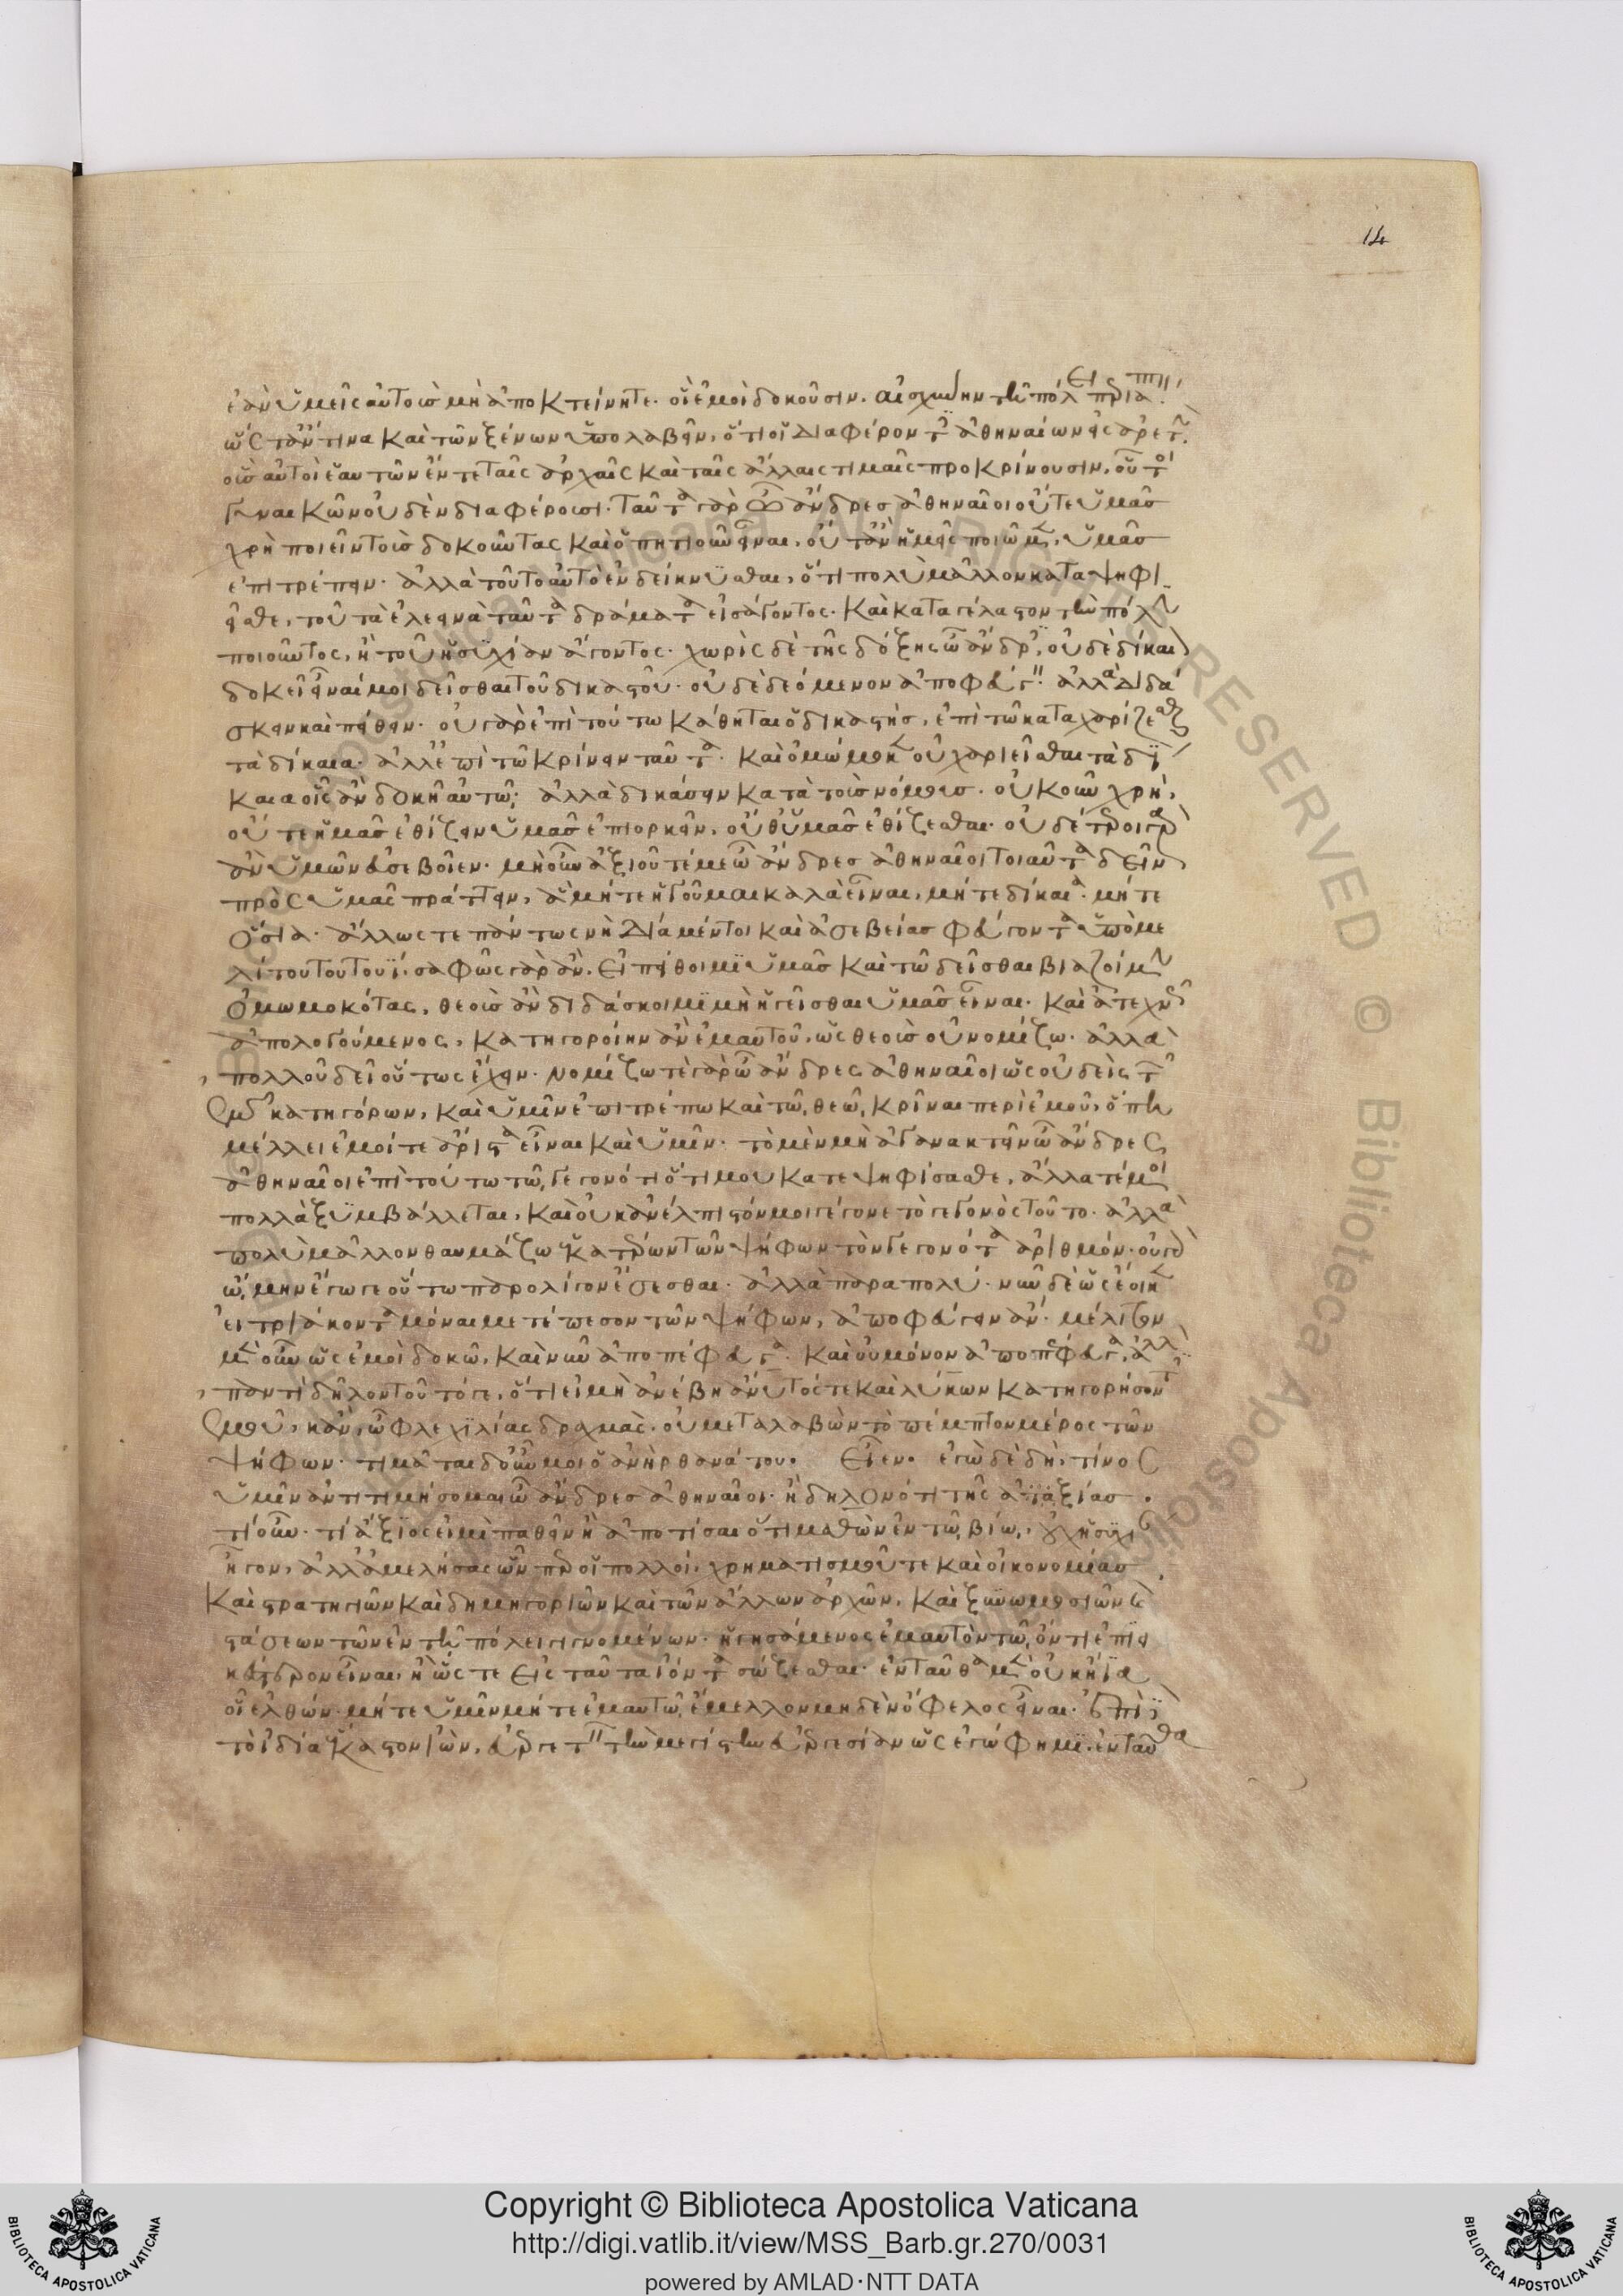 14
ἐὰν ὑμεῖς αὐτοὺς μὴ ἀποκτείνητε· οἳ ἐμοὶ δοκοῦσιν αἰσχύνην τῆ πόλει περιάπτειν·
ὥστ' ἄν τινα καὶ τῶν ξένων ὑπολαβεῖν, ὅτι οἱ διαφέροντες ἀθηναίων εἰς ἀρετὴν·
οὓς αὐτοὶ ἑαυτῶν ἔν τε ταῖς ἀρχαῖς καὶ ταῖς ἄλλαις τιμαῖς προκρίνουσιν, οὗτοι
γυναικῶν οὐδὲν διαφέρουσι· ταῦτα γὰρ ὦ ἄνδρες ἀθηναῖοι οὔτε ὑμᾶς
χρὴ ποιεῖν τοὺς δοκοῦντας καὶ ὁπητιοῦν εἶναι, οὔτ' ἂν ἡμεῖς ποιῶμεν, ὑμᾶς
ἐπιτρέπειν· ἀλλὰ τοῦτο αὐτὸ ἐνδείκνυσθαι, ὅτι πολὺ μᾶλλον καταψηφι
εῖσθε, τοῦ τὰ ἐλεεινὰ ταῦτα δράματα εἰσάγοντος· καὶ καταγέλαστον τὴν πόλιν
ποιοῦντος, ἢ τοῦ ἡσυχίαν ἄγοντος· χωρὶς δὲ τῆς δόξης ὦ ἄνδρες, οὐδὲ δίκαιόν
δοκεῖ εἶναί μοι δεῖσθαι τοῦ δικαστοῦ· οὐδὲ δεόμενον ἀποφεύγειν· ἀλλὰ διδά
σκειν καὶ πείθειν· οὐ γὰρ ἐπὶ τούτω κάθηται ὁ δικαστής, ἐπὶ τῶ καταχαρίζεσθαι
τὰ δίκαια· ἀλλ' ἐπὶ τῶ κρίνειν ταῦτα· καὶ ὀμώμοκεν οὐ χαριεῖσθαι τὰ δί
καια οἷς ἂν δοκῆ αὐτῶ· ἀλλὰ δικάσειν κατὰ τοὺς νόμους· οὐκοῦν χρὴ,
οὔτε ἡμᾶς ἐθίζειν ὑμᾶς ἐπιορκεῖν, οὔθ' ὑμᾶς ἐθίζεσθαι· οὐδέτεροι γὰρ
ἂν ὑμῶν εὐσεβοῖεν· μὴ οὖν ἀξιοῦτέ με ὦ ἄνδρες ἀθηναῖοι τοιαῦτα δεῖν
πρὸς ὑμᾶς πράττειν, ἃ μήτε ἡγοῦμαι καλὰ εἶναι, μήτε δίκαια· μήτε
ὅσια· ἄλλως τε πάντως νὴ Δία μέντοι καὶ ἀσεβείας φεύγοντα ὑπὸ με
λίτου τουτουΐ· σαφῶς γὰρ ἂν, εἰ πείθοιμι ὑμᾶς καὶ τῶ δεῖσθαι βιαζοίμην
ὀμωμοκότας, θεοὺς ἂν διδάσκοιμι μὴ ἡγεῖσθαι ὑμᾶς εἶναι· καὶ ἀτεχνῶς
ἀπολογούμενος, κατηγοροίην ἂν ἐμαυτοῦ, ὡς θεοὺς οὐ νομίζω· ἀλλὰ
πολλοῦ δεῖ οὕτως ἔχειν· νομίζω τὲ γὰρ ὦ ἄνδρες ἀθηναῖοι ὡς οὐδεὶς τῶν
ἐμῶν κατηγόρων, καὶ ὑμῖν ἐπιτρέπω καὶ τῶ θεῶ, κρῖναι περὶ ἐμοῦ, ὅπη
μέλλει ἐμοί τε ἄριστα εἶναι καὶ ὑμῖν· τὸ μὲν μὴ ἀγανακτεῖν ὦ ἄνδρες
ἀθηναῖοι ἐπὶ τούτω τῶ γεγονότι ὅτι μου κατεψηφίσασθε, ἄλλα τέ μοι
πολλὰ ξυμβάλλεται, καὶ οὐκ ἀνέλπιστόν μοι γέγονε τὸ γεγονὸς τοῦτο· ἀλλὰ
πολὺ μᾶλλον θαυμάζω ἑκατέρων τῶν ψήφων τὸν γεγονότα ἀριθμόν· οὐ γὰρ
ὤμην ἔγωγε οὕτω παρ' ὀλίγον ἔσεσθαι· ἀλλὰ παρὰ πολύ· νῦν δὲ ὡς ἔοικεν
εἰ τριάκοντα μόναι μετέπεσον τῶν ψήφων, ἀποφεύγειν ἄν· μέλιτον
μὲν οὖν ὡς ἐμοὶ δοκῶ, καὶ νῦν ἀποπέφευγα· καὶ οὐ μόνον ἀποπέφευγα, ἀλλὰ
παντὶ δῆλον τοῦτό γε, ὅτι εἰ μὴ ἀνέβη ἄνυτός τε καὶ λύκων κατηγορήσοντες
ἐμοῦ, κἂν ὦφλε χιλίας δραχμὰς, οὐ μεταλαβὼν τὸ πέμπτον μέρος τῶν
ψήφων· τιμᾶται δ' οὖν μοι ὁ ἀνὴρ θανάτου. Εἶεν. ἐγὼ δὲ δὴ, τίνος
ὑμῖν ἀντιτιμήσομαι ὦ ἄνδρες ἀθηναῖοι· ἢ δῆλον ὅτι τῆς ἀξίας.
τί οὖν· τί ἄξιος εἰμὶ παθεῖν ἢ ἀποτῖσαι ὅτι μαθὼν ἐν τῶ βίω, οὐχ ἡσυχίαν
ἦγον, ἀλλ' ἀμελήσας ὧνπερ οἱ πολλοί, χρηματισμοῦ τε καὶ οἰκονομίας
καὶ στρατηγιῶν καὶ δημηγοριῶν καὶ τῶν ἄλλων ἀρχῶν, καὶ ξυνωμοσιῶν καὶ
στάσεων τῶν ἐν τῆ πόλει γιγνομένων· ἡγησάμενος ἐμαυτὸν τῶ ὄντι ἐπιει
κέστερον εἶναι, ἢ ὥστε εἰς ταῦτα ἰόντα σώζεσθαι· ἐνταῦθα μὲν οὐκ ἦια
οἷ ἐλθὼν μήτε ὑμῖν μήτε ἐμαυτῶ ἔμελλον μηδὲν ὄφελος εἶναι· ἐπὶ
τὸ ἰδία ἕκαστον ἰὼν, εὐεργετεῖν τὴν μεγίστην εὐεργεσίαν ὡς ἐγώ φημι, ἐνταῦθα
Copyright © Biblioteca Apostolica Vaticana
http://digi.vatlib.it/view/MSS_Barb.gr.270/0031
powered by AMLAD·NTT DATA